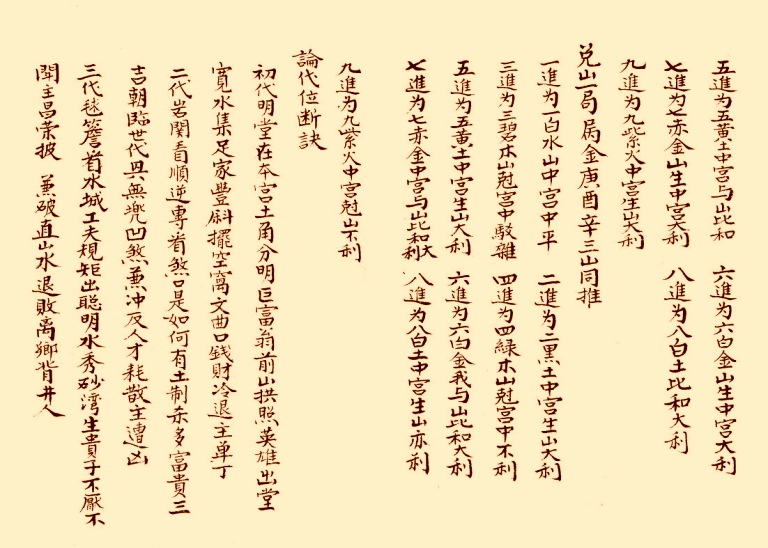 五進为五黄土中宫与山比和　六進为六白金山生中宫大利
七進为七赤金山生中宫大利　八進为八白土比和大利
九進为九紫火中宫生山大利
兑山一局 属金庚酉辛三山同推
一進为一白水山中宫中平　二進为二黑土中宫生山大利
三進为三碧木山尅宫中駁雜　四進为四緑木山尅宫中不利
五進为五黄土中宫生山大利　六進为六白金我与山比和大利
七進为七赤金中宫与山比和大利　八進为八白土中宫生山亦利
九進为九紫火中宫尅山不利
論代位断訣
初代明堂在本宫土角分明巨富翁前山拱照英雄出堂
寛水集足家豐厨擺空窩文曲口錢财冷退主单丁
二代岩関看順逆專看煞口是如何有土制杀多富貴三
吉朝臨世代興無兜凹煞兼冲反人才耗散主遭凶
三代毬簷着水城工夫規矩出聪明水秀砂湾生貴子不厭不
聞主昌荣披　兼破直山水退敗离鄉背井人